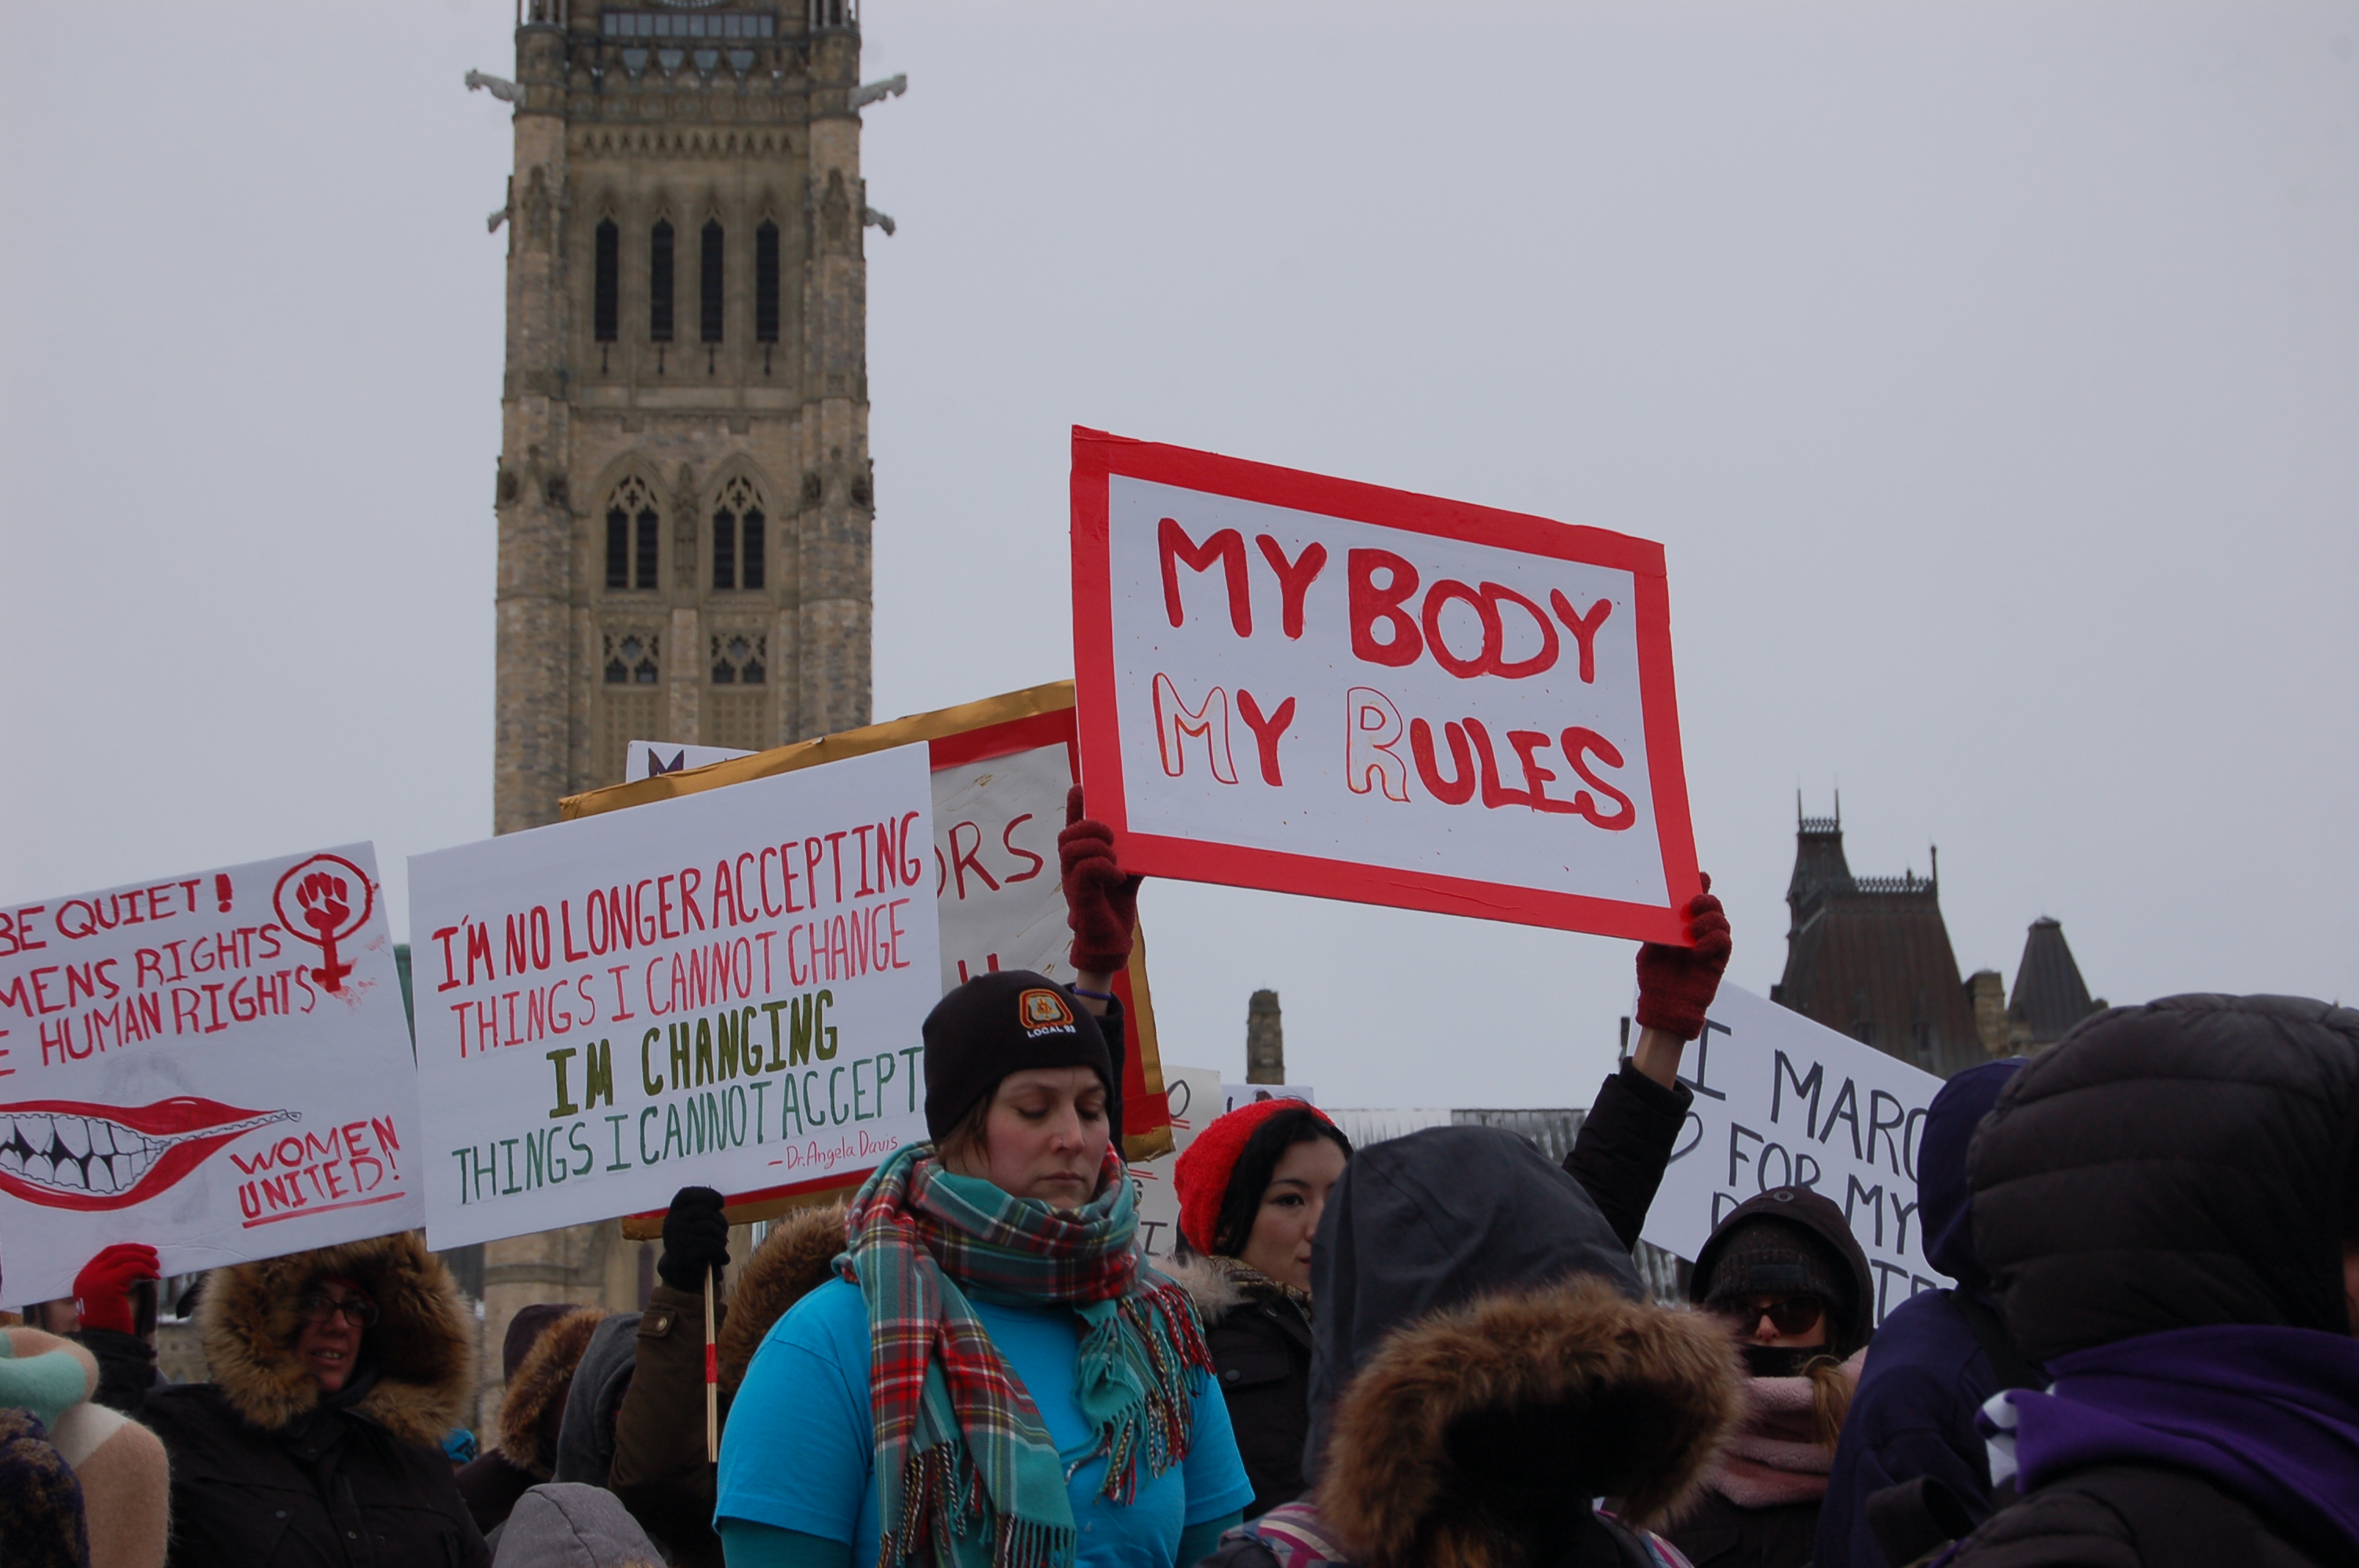 BE QUIET!
MENS RIGHTS
HUMAN RIGHTS
WOMEN
UNITED!
I'M NO LONGER ACCEPTING
THINGS I CANNOT CHANGE
IM CHANGING
THINGS I CANNOT ACCEPT
-Dr. Angela Davis
ORS
MY BODY
MY RULES
LOCAL 93
I MARC
FOR MY